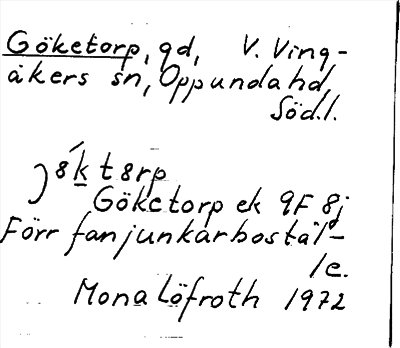 Göketorp, gd, V. Ving-
åkers sn, Oppunda hd,
Söd.l.
Göketorp ek 9F 8j
Förr fanjunkarbostäl-
le.
Mona Löfroth 1972